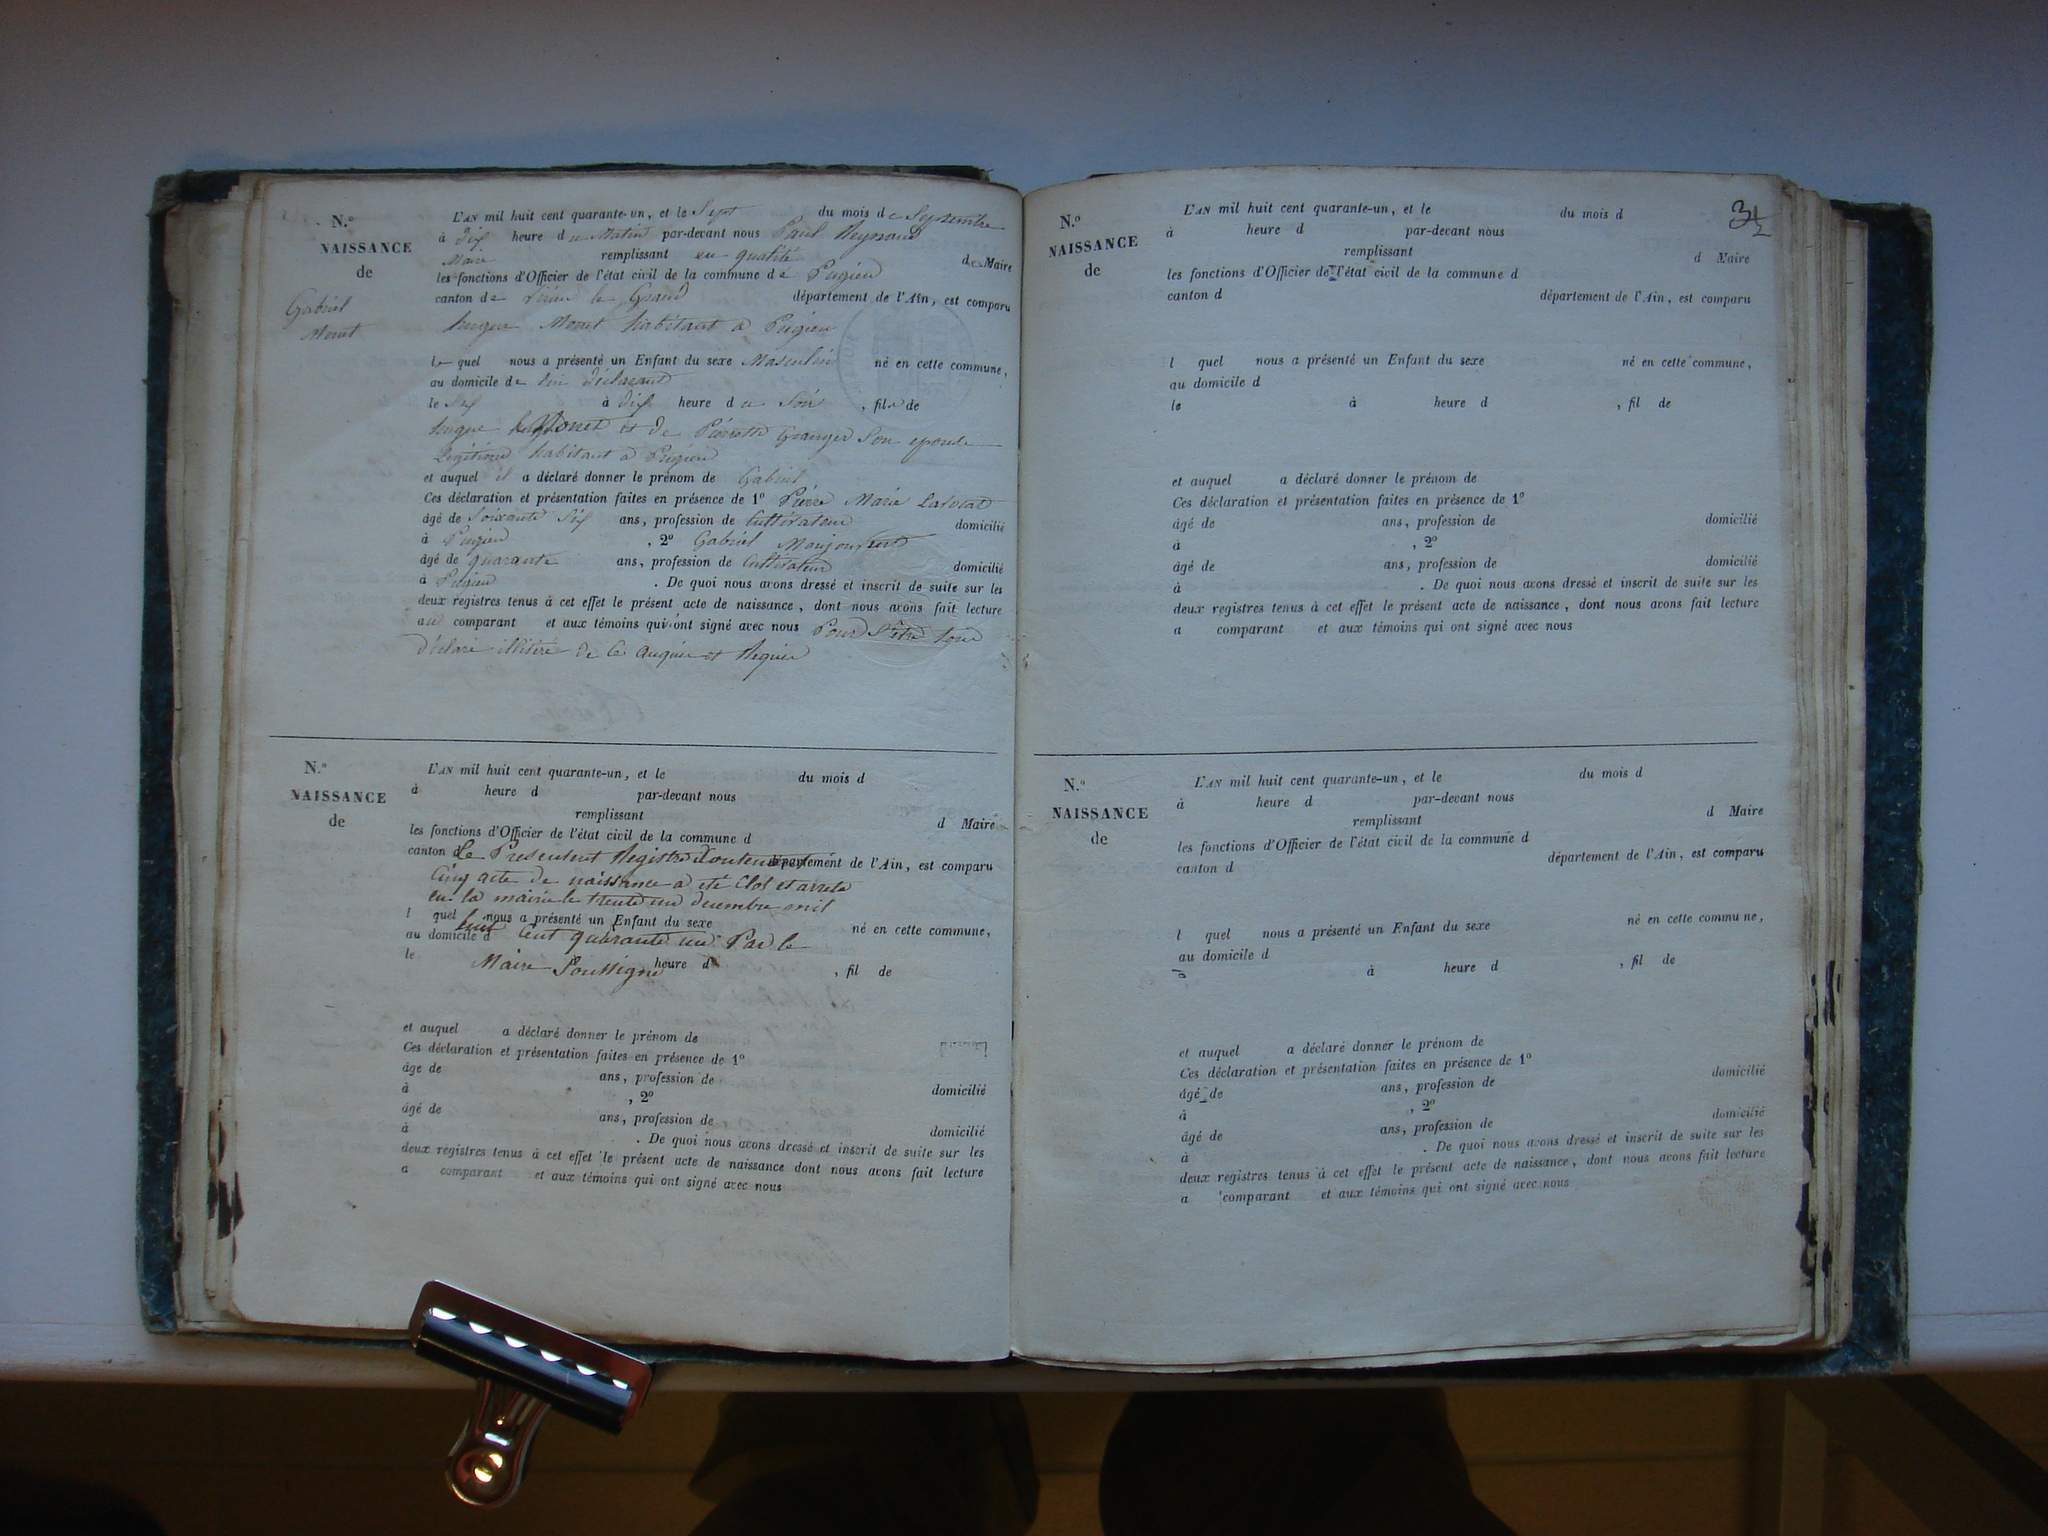 N.º
NAISSANCE
de
Gabriel
Monet
L'AN mil huit cent quarante-un, et le Sept du mois de Septembre
à dix heure du Matin par-devant nous Paul Reynaud
Maire remplissant en qualité de Maire
les fonctions d'Officier de l'état civil de la commune de Pugieu
canton de Virieu le Grand département de l'Ain, est comparu
Monet habitant a Pugieu
le quel nous a présenté un Enfant du sexe Masculin né en cette commune,
au domicile de lui déclarant
le Six à dix heure du Soir, fils de
Monet et de Pierrette Granger Son epouse
Légitime habitant a Pugieu
et auquel il a déclaré donner le prénom de Gabriel
Ces déclaration et présentation faites en présence de 1º Pierre Marie
âgé de Soixante Six ans, profession de Cultivateur domicilié
à Pugieu, 2º Gabriel
âgé de quarante ans, profession de Cultivateur domicilié
à Pugieu. De quoi nous avons dressé et inscrit de suite sur les
deux registres tenus à cet effet le présent acte de naissance, dont nous avons fait lecture
au comparant et aux témoins qui ont signé avec nous Pour
déclaré de Ce et Requis
N.º
NAISSANCE
de
L'AN mil huit cent quarante-un, et le du mois d
à heure d par-devant nous
remplissant d Maire
les fonctions d'Officier de l'état civil de la commune d
canton d département de l'Ain, est comparu
Le Presentent Registre Contenent
Cinq acte de naissance a eté Clos et arreté
en la mairie le trente un decembre mil
l quel nous a présenté un Enfant du sexe né en cette commune,
huit Cent quarante un Par le
au domicile d
le heure d, fil de
Maire Soussigné
et auquel a déclaré donner le prénom de
Ces déclaration et présentation faites en présence de 1º
âgé de ans, profession de
à, 2º domicilié
âgé de ans, profession de
à domicilié
. De quoi nous avons dressé et inscrit de suite sur les
deux registres tenus à cet effet le présent acte de naissance dont nous avons fait lecture
a comparant et aux témoins qui ont signé avec nous
N.º
NAISSANCE
de
L'AN mil huit cent quarante-un, et le du mois d
à heure d par-devant nous
remplissant d Maire
les fonctions d'Officier de l'état civil de la commune d
canton d département de l'Ain, est comparu
l quel nous a présenté un Enfant du sexe né en cette commune,
au domicile d
le à heure d, fil de
et auquel a déclaré donner le prénom de
Ces déclaration et présentation faites en présence de 1º
âgé de ans, profession de domicilié
à, 2º
âgé de ans, profession de domicilié
à. De quoi nous avons dressé et inscrit de suite sur les
deux registres tenus à cet effet le présent acte de naissance, dont nous avons fait lecture
a comparant et aux témoins qui ont signé avec nous
N.º
NAISSANCE
de
L'AN mil huit cent quarante-un, et le du mois d
à heure d par-devant nous
remplissant d Maire
les fonctions d'Officier de l'état civil de la commune d
canton d département de l'Ain, est comparu
l quel nous a présenté un Enfant du sexe né en cette commune,
au domicile d
à heure d, fil de
et auquel a déclaré donner le prénom de
Ces déclaration et présentation faites en présence de 1º
âgé de ans, profession de domicilié
à, 2º
âgé de ans, profession de domicilié
à. De quoi nous avons dressé et inscrit de suite sur les
deux registres tenus à cet effet le présent acte de naissance, dont nous avons fait lecture
a comparant et aux témoins qui ont signé avec nous